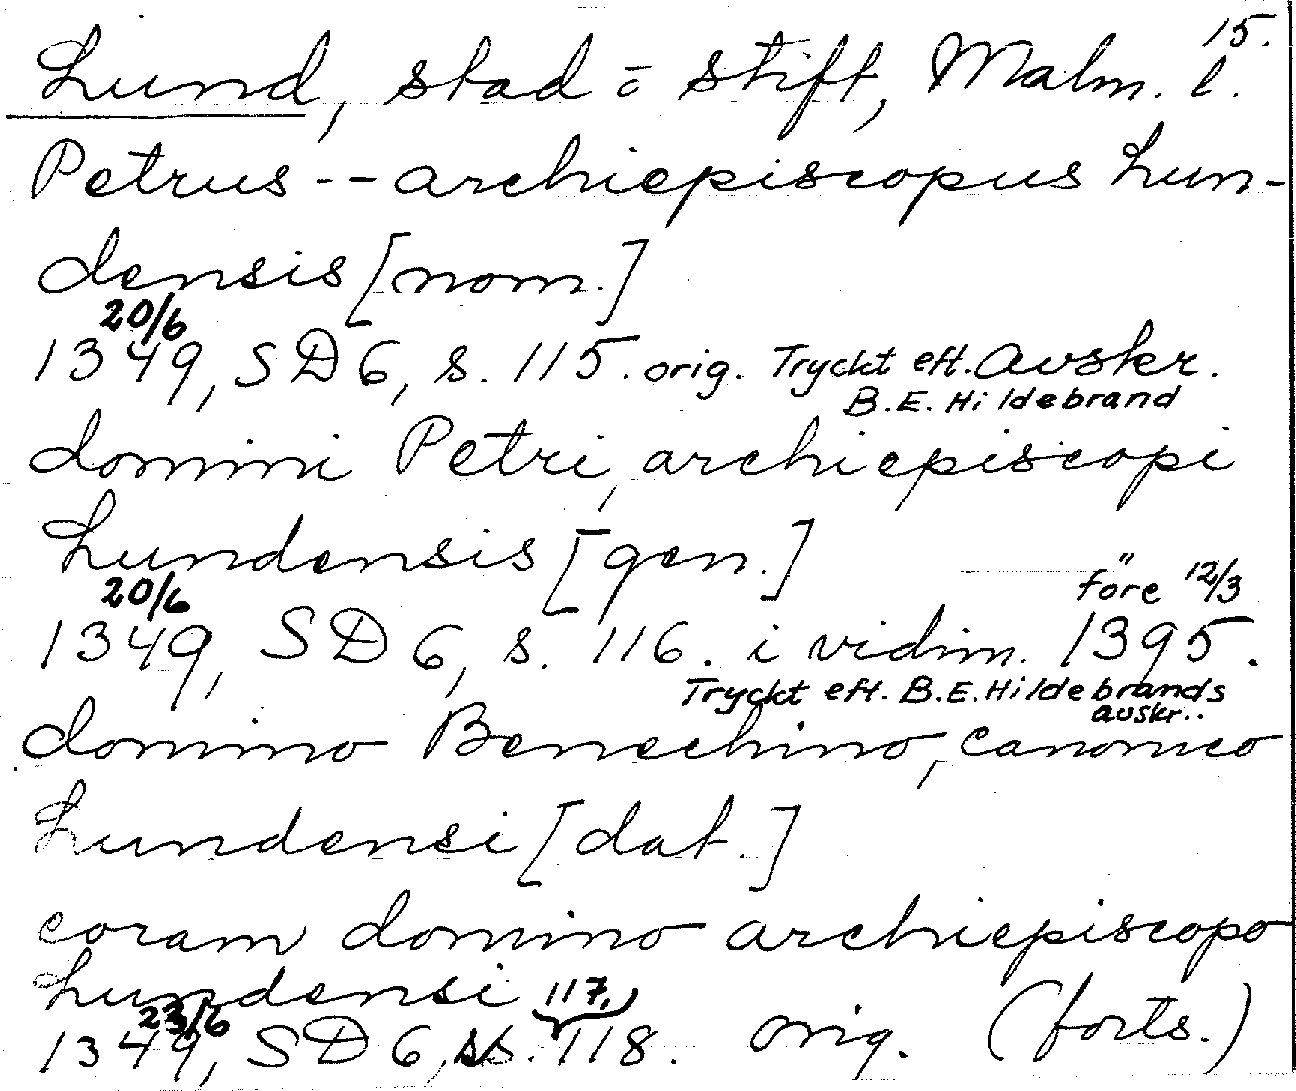 15.
Lund, stad o. stift, Malm. l.
Petrus -- archiepiscopus Lun-
densis [nom.]
20/6
1349, SD 6, s. 115. orig. Tryckt eft. avskr.
B.E. Hildebrand
domini Petri, archiepiscopi
Lundensis [gen.]
20/6 före 12/3
1349, SD 6, s. 116. i vidim. 1395.
Tryckt eft. B.E. Hildebrands
avskr..
domino Benechino, canonico
Lundensi [dat.]
coram domino archiepiscopo
Lundensi 117,
23/6
1349, SD 6, s. 118. orig. (forts.)